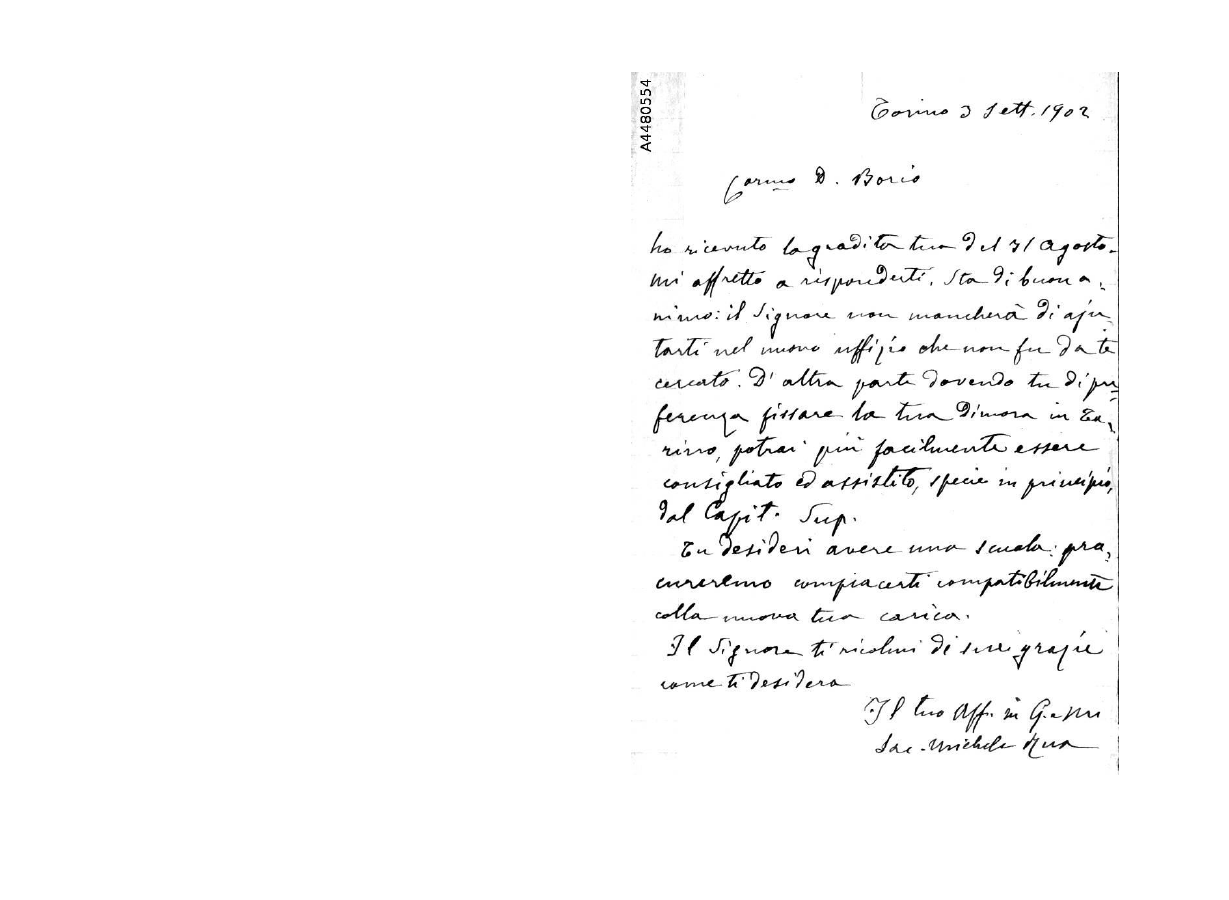 A4480554
Torino 3 Sett. 1902
Carmo D. Borio
ho ricevuto la gradita tua del 31 Agosto.
mi affretto a risponderti. Sta di buon a-
nimo: il Signore non mancherà di aju-
tarti nel nuovo uffizio che non fu da te
cercato. D'altra parte dovendo tu di pre-
ferenza fissare la tua dimora in To-
rino, potrai più facilmente essere
consigliato ed assistito, specie in principio,
dal Capit. Sup.
Tu desideri avere una scuola: pro-
cureremo compiacerti compatibilmente
colla nuova tua carica.
Il Signore ti ricolmi di sue grazie
come ti desidera
Il tuo Aff. in G. e M.
Sac. Michele Rua